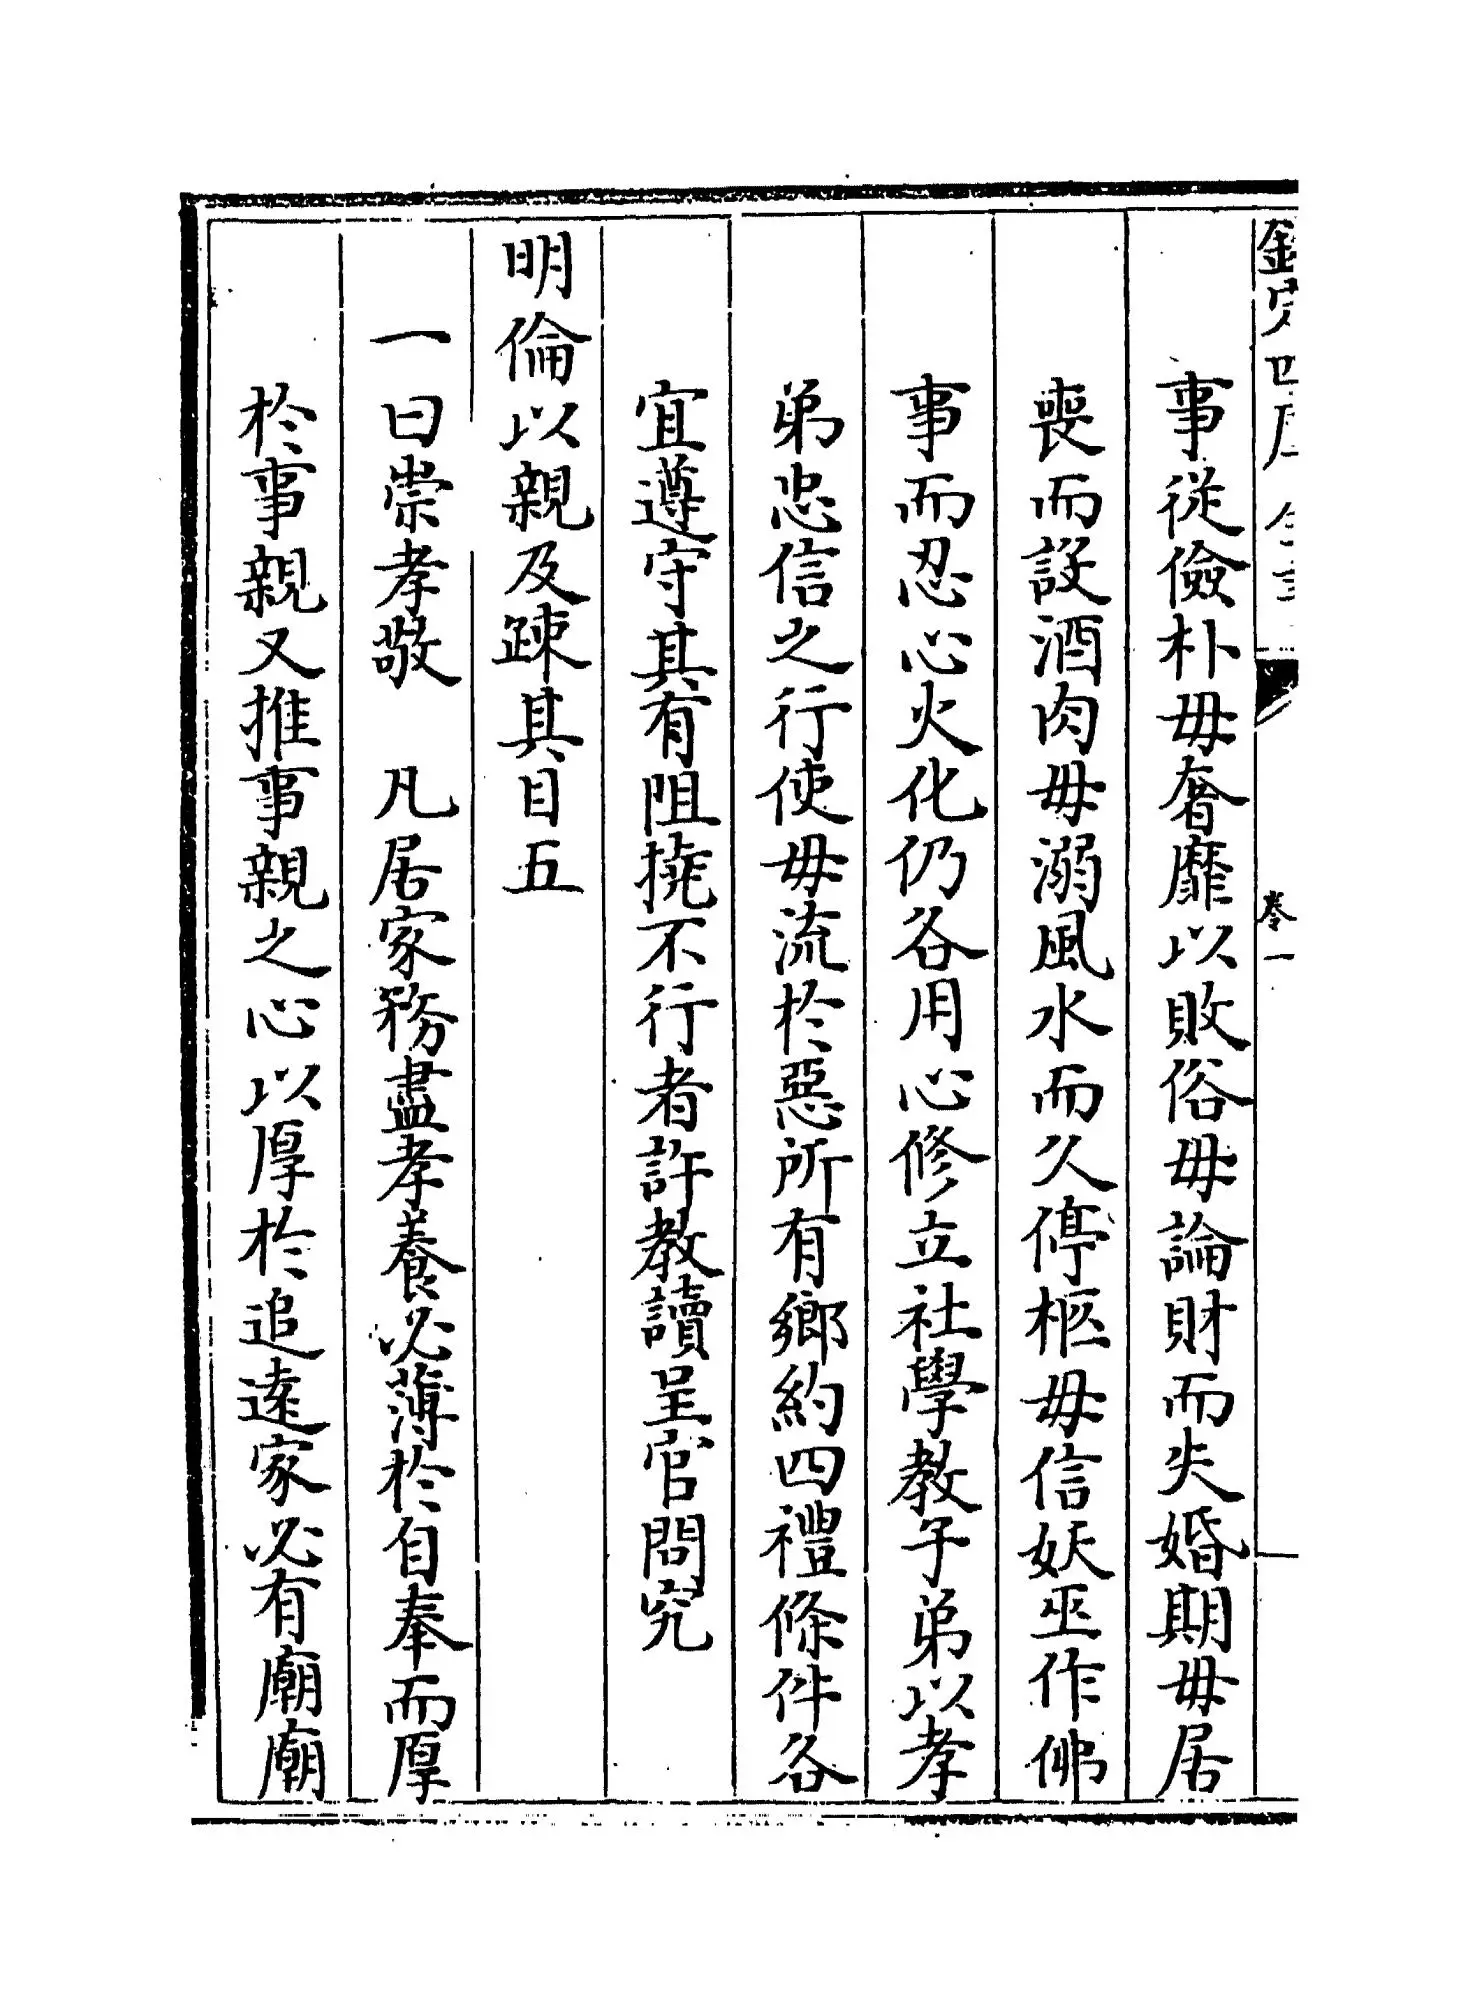 欽定四庫全書
卷一
事從儉朴毋奢靡以敗俗毋論財而失婚期毋居
喪而設酒肉毋溺風水而久停柩毋信妖巫作佛
事而忍心火化仍各用心修立社學教子弟以孝
弟忠信之行使毋流於惡所有鄉約四禮條件各
宜遵守其有阻撓不行者許教讀呈官問究
明倫以親及疎其目五
一曰崇孝敬　凡居家務盡孝養必薄於自奉而厚
於事親又推事親之心以厚於追遠家必有廟廟